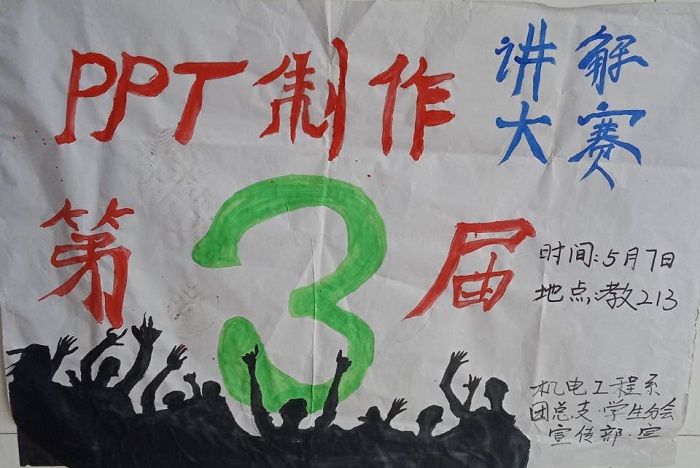 PPT制作 讲解
大赛
第3届
时间:5月7日
地点:教213
机电工程系
团总支·学生分会
宣传部·宣